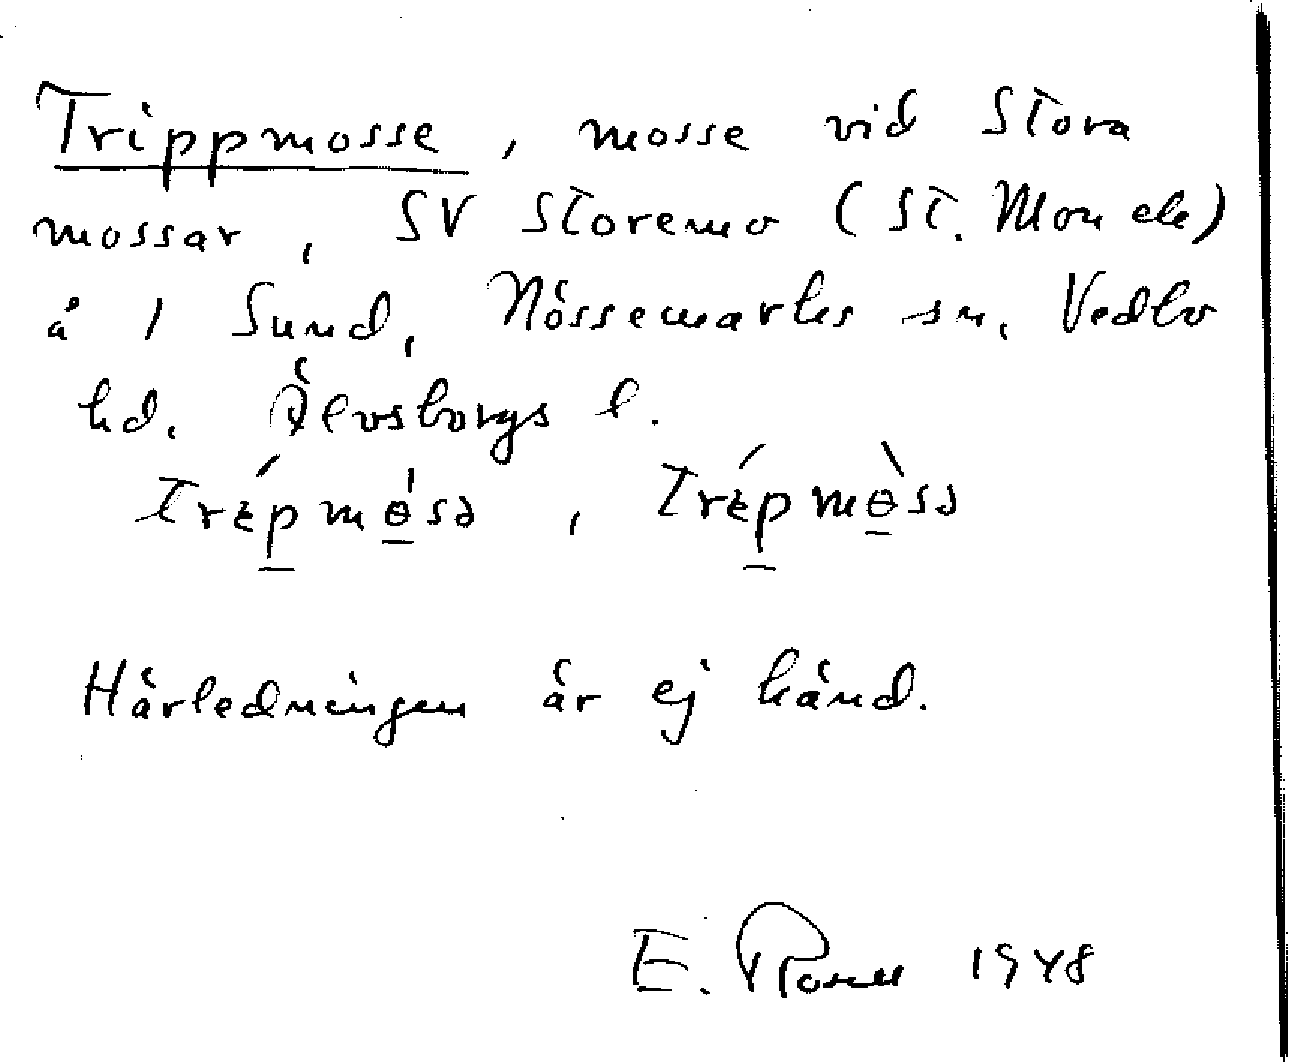 Trippmosse, mosse vid Stora
mossar, SV Storemo (St. Mon ek)
å 1 Sund, Nössemarks sn, Vedbo
hd. Älvsborgs l.
Härledningen är ej känd.
E. 1948